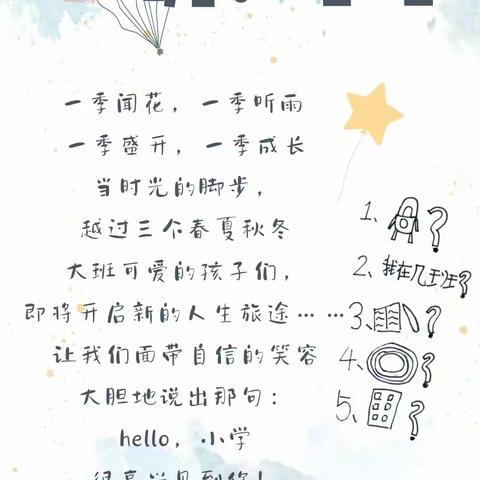 一季闻花，一季听雨
一季盛开，一季成长
当时光的脚步，
越过三个春夏秋冬
大班可爱的孩子们，
即将开启新的人生旅途……
让我们面带自信的笑容
大胆地说出那句：
hello，小学
很高兴见到你！
1、?
2、我在几班?
3、?
4、?
5、?